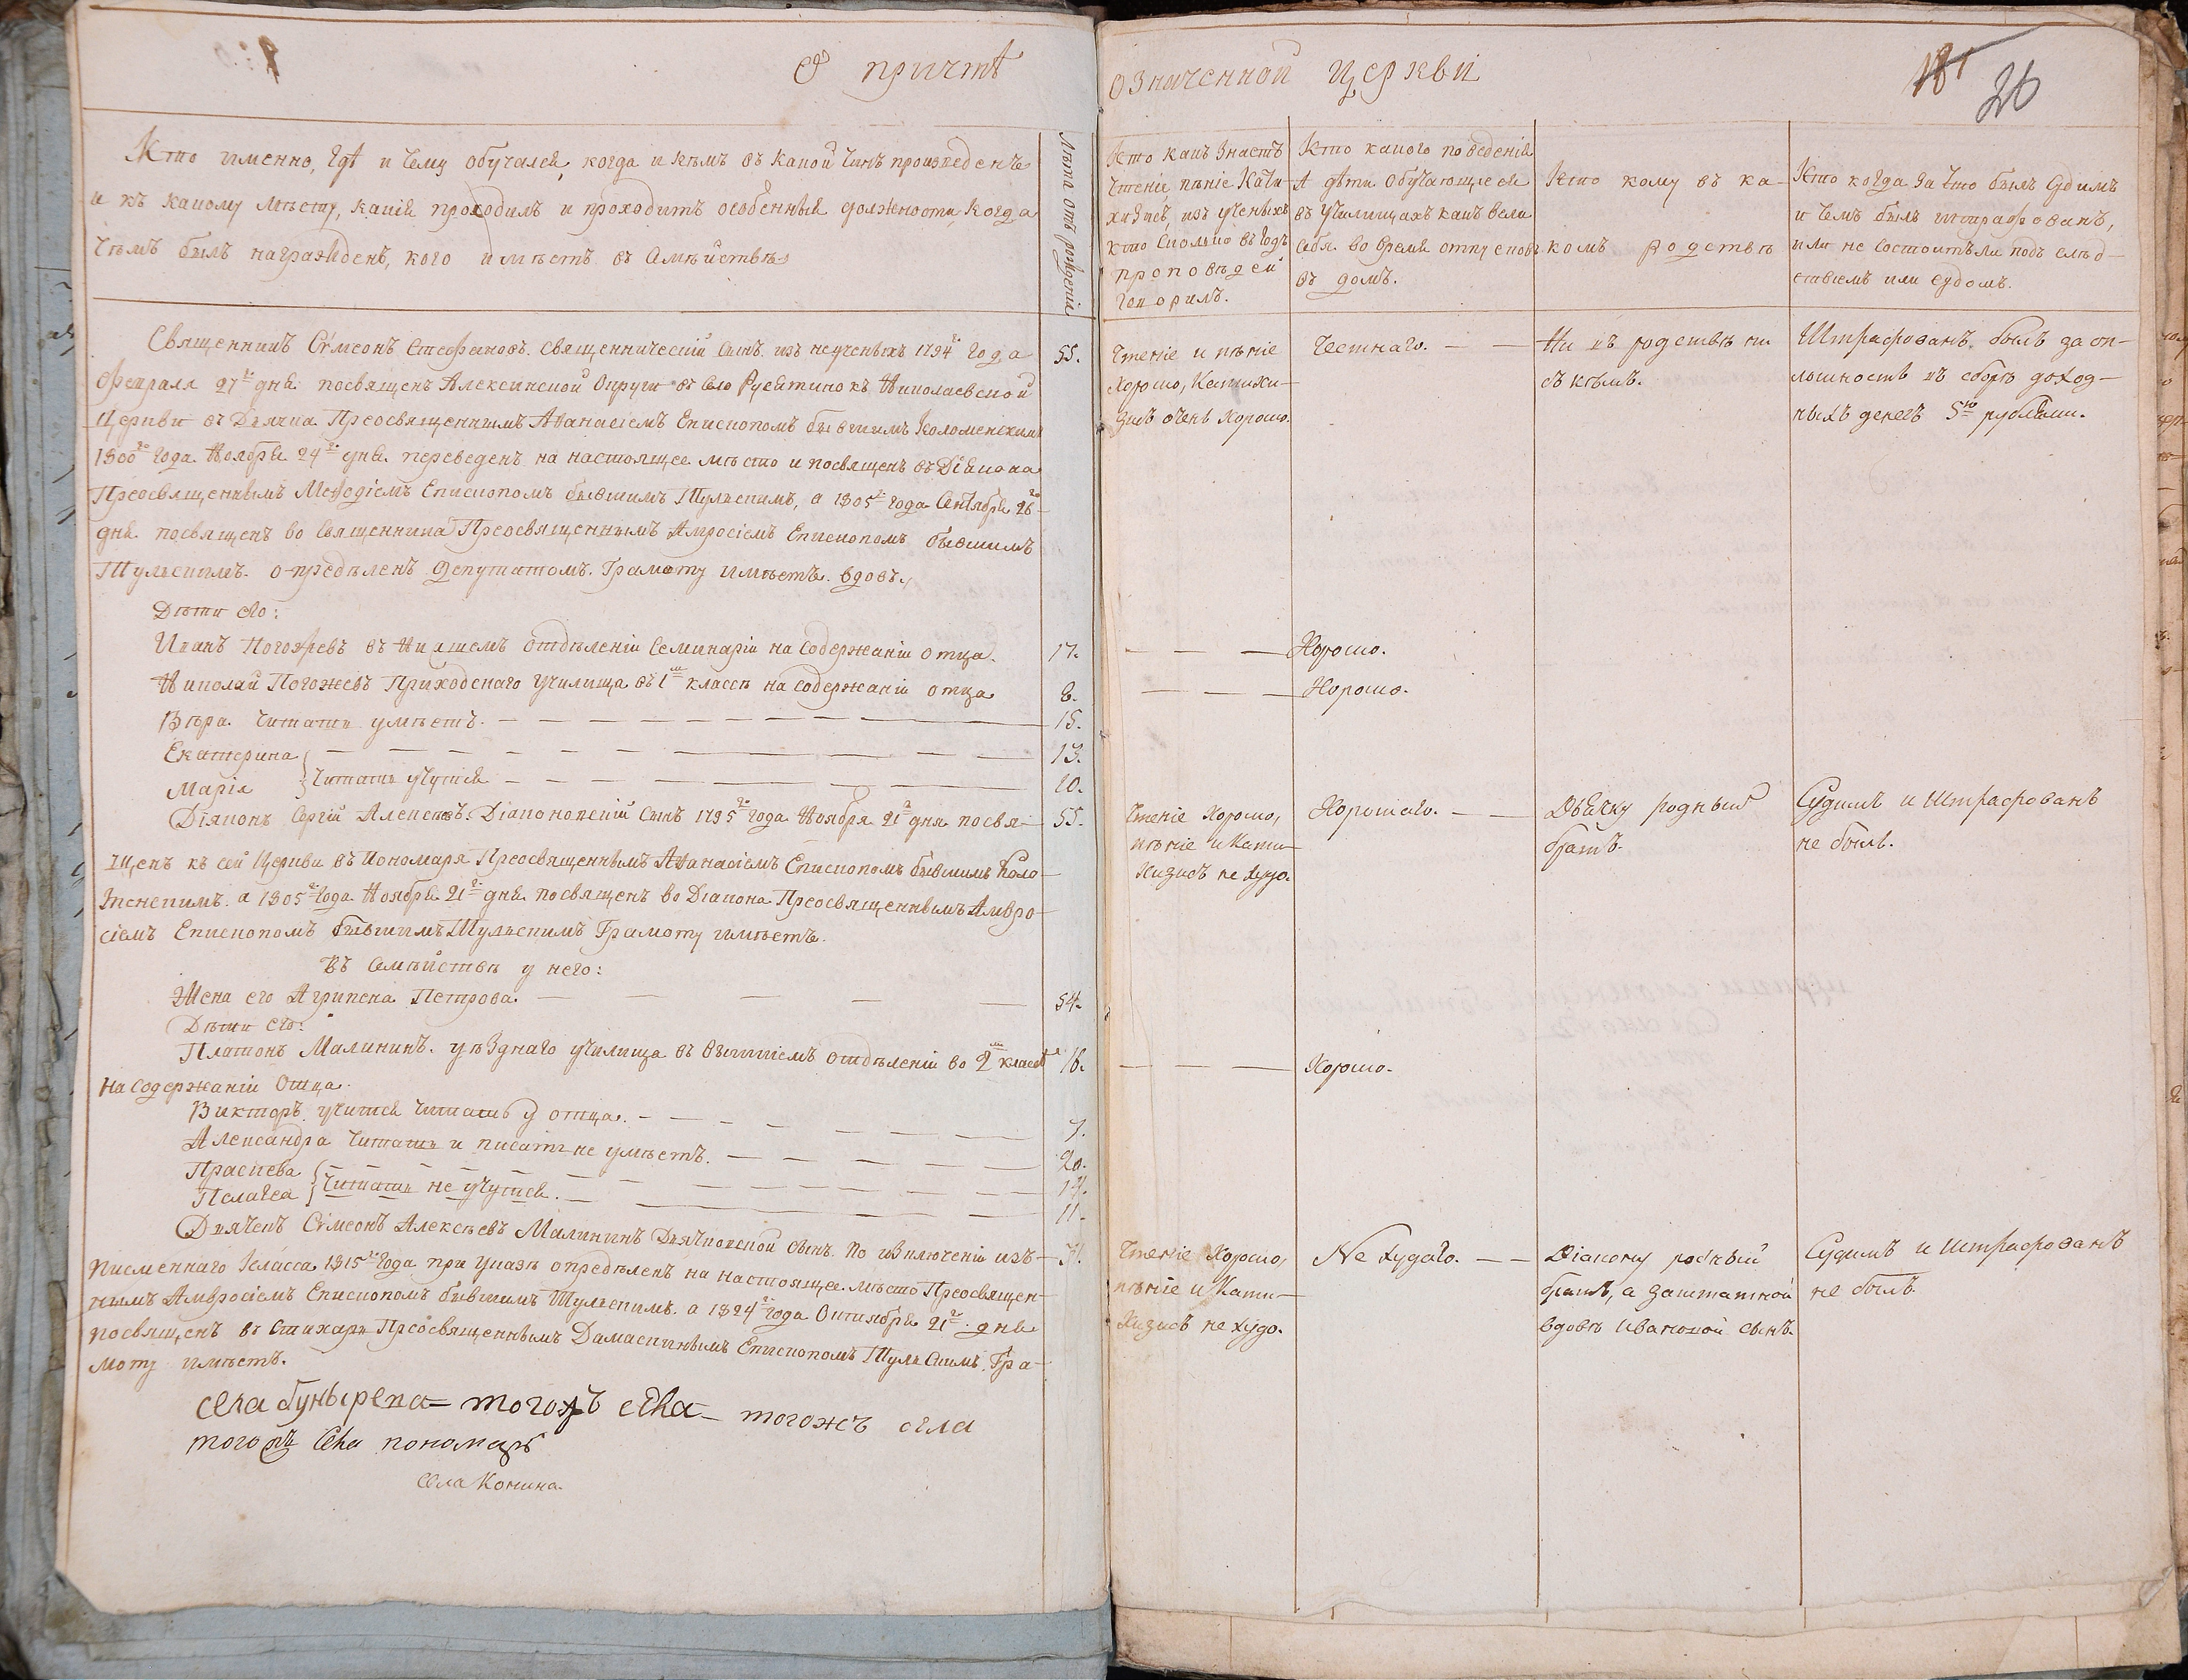 О причтѣ
Кто именно, гдѣ и чему обучался, когда и кѣмъ въ какой чинъ произведенъ
и къ какому мѣсту, какія проходилъ и проходитъ особенныя должности, когда
чѣмъ былъ награжденъ, кого имѣетъ въ семѣйствѣ
Лѣта отъ рожденія
Священникъ Сѵмеонъ Стефановъ. священническій сынъ. изъ неученыхъ 1794го года 55.
Февраля 27го дня посвященъ Алексинской Округи въ село Русятино къ Николаевской
Церкви въ Дьячка Преосвященнымъ Аѳанасіемъ Епископомъ бывшимъ Коломенскимъ
1800го года Ноября 24го дня переведенъ на настоящее мѣсто и посвященъ въ Діякона
Преосвященнымъ Меѳодіемъ Епископомъ бывшимъ Тульскимъ, а 1805го года Сентября 26го
дня посвященъ во священника Преосвященнымъ Амросіемъ Епископомъ бывшимъ
Тульскимъ. опредѣленъ Депутатомъ. Грамоту имѣетъ. вдовъ.
Дѣти его:
Иванъ Погожевъ въ Нисшемъ отдѣленіи Семинаріи на содержаніи отца. 17.
Николай Погожевъ Приходскаго Училища въ 1м классѣ на содержаніи отца 8.
Вѣра. Читать умѣетъ. 15.
Екатерина 13.
Марія читать учутся 10.
Діяконъ Сергій Алексѣевъ Діаконовскій сынъ 1795го года Ноября 21го дня посвя- 55.
щенъ къ сей Церкви въ Пономаря Преосвященнымъ Аѳанасіемъ Епископомъ бывшимъ Коло-
менскимъ. а 1805го года Ноября 21го дня посвященъ во Діакона Преосвященнымъ Амвро-
сіемъ Епископомъ бывшимъ Тульскимъ Грамоту имѣетъ.
Въ семѣйствѣ у него:
Жена его Агрипена Петрова. 54.
Дѣти его:
Платонъ Малининъ. уѣзднаго училища въ высшемъ отдѣленіи во 2м классѣ 16.
на содержаніи Отца.
Викторъ учится читать у отца. 7.
Александра Читать и писать не умѣетъ. 20.
Прасковья 14.
Пелагея Читать не учутся. 11.
Дьячекъ Сѵмеонъ Алексѣевъ Малининъ Дьячковской сынъ. По изключеніи изъ 31.
писменнаго Класса 1815го года при указѣ опредѣленъ на настоящее мѣсто Преосвящен-
нымъ Амвросіемъ Епископомъ бывшимъ Тульскимъ. а 1824го года Октября 21го дня
посвященъ въ Стихарь Преосвященнымъ Дамаскинымъ Епископомъ Тульскимъ. Гра-
моту имѣетъ.
села бунырева = тогожъ села - тогожъ села
тогожъ села пономарь
села Конина.
означенной церкви
181 26
Кто какъ знаетъ
чтеніе, пѣніе Кати-
хизисъ, изъ ученыхъ
кто сколько въ годъ
проповѣдей
говорилъ.
Кто какого поведенія
А дѣти обучающіеся
въ училищахъ какъ вели
себя во время отпусковъ
въ домъ.
Кто кому въ ка-
комъ родствѣ
Кто когда за что былъ судимъ
и чемъ былъ штрафованъ,
или не состоитъ ли подъ слѣд-
ствіемъ или судомъ.
Чтеніе и пѣніе
хорошо, Катихи-
зисъ очень хорошо.
Честнаго.
Ни въ родствѣ ни
съ кѣмъ.
Штрафованъ былъ за оп-
лошность въ сборѣ доход-
ныхъ денегъ 5ю рублями.
Хорошо.
Хорошо.
Чтеніе Хорошо,
пѣніе и Кати-
хизисъ не худо.
Хорошаго.
Дьячку родный
братъ.
Судимъ и Штрафованъ
не былъ.
Хорошо.
Чтеніе Хорошо,
пѣніе и Кати-
хизисъ не худо.
Не худаго.
Діакону родный
братъ, а заштатной
вдовѣ Ивановой сынъ.
Судимъ и Штрафованъ
не былъ.